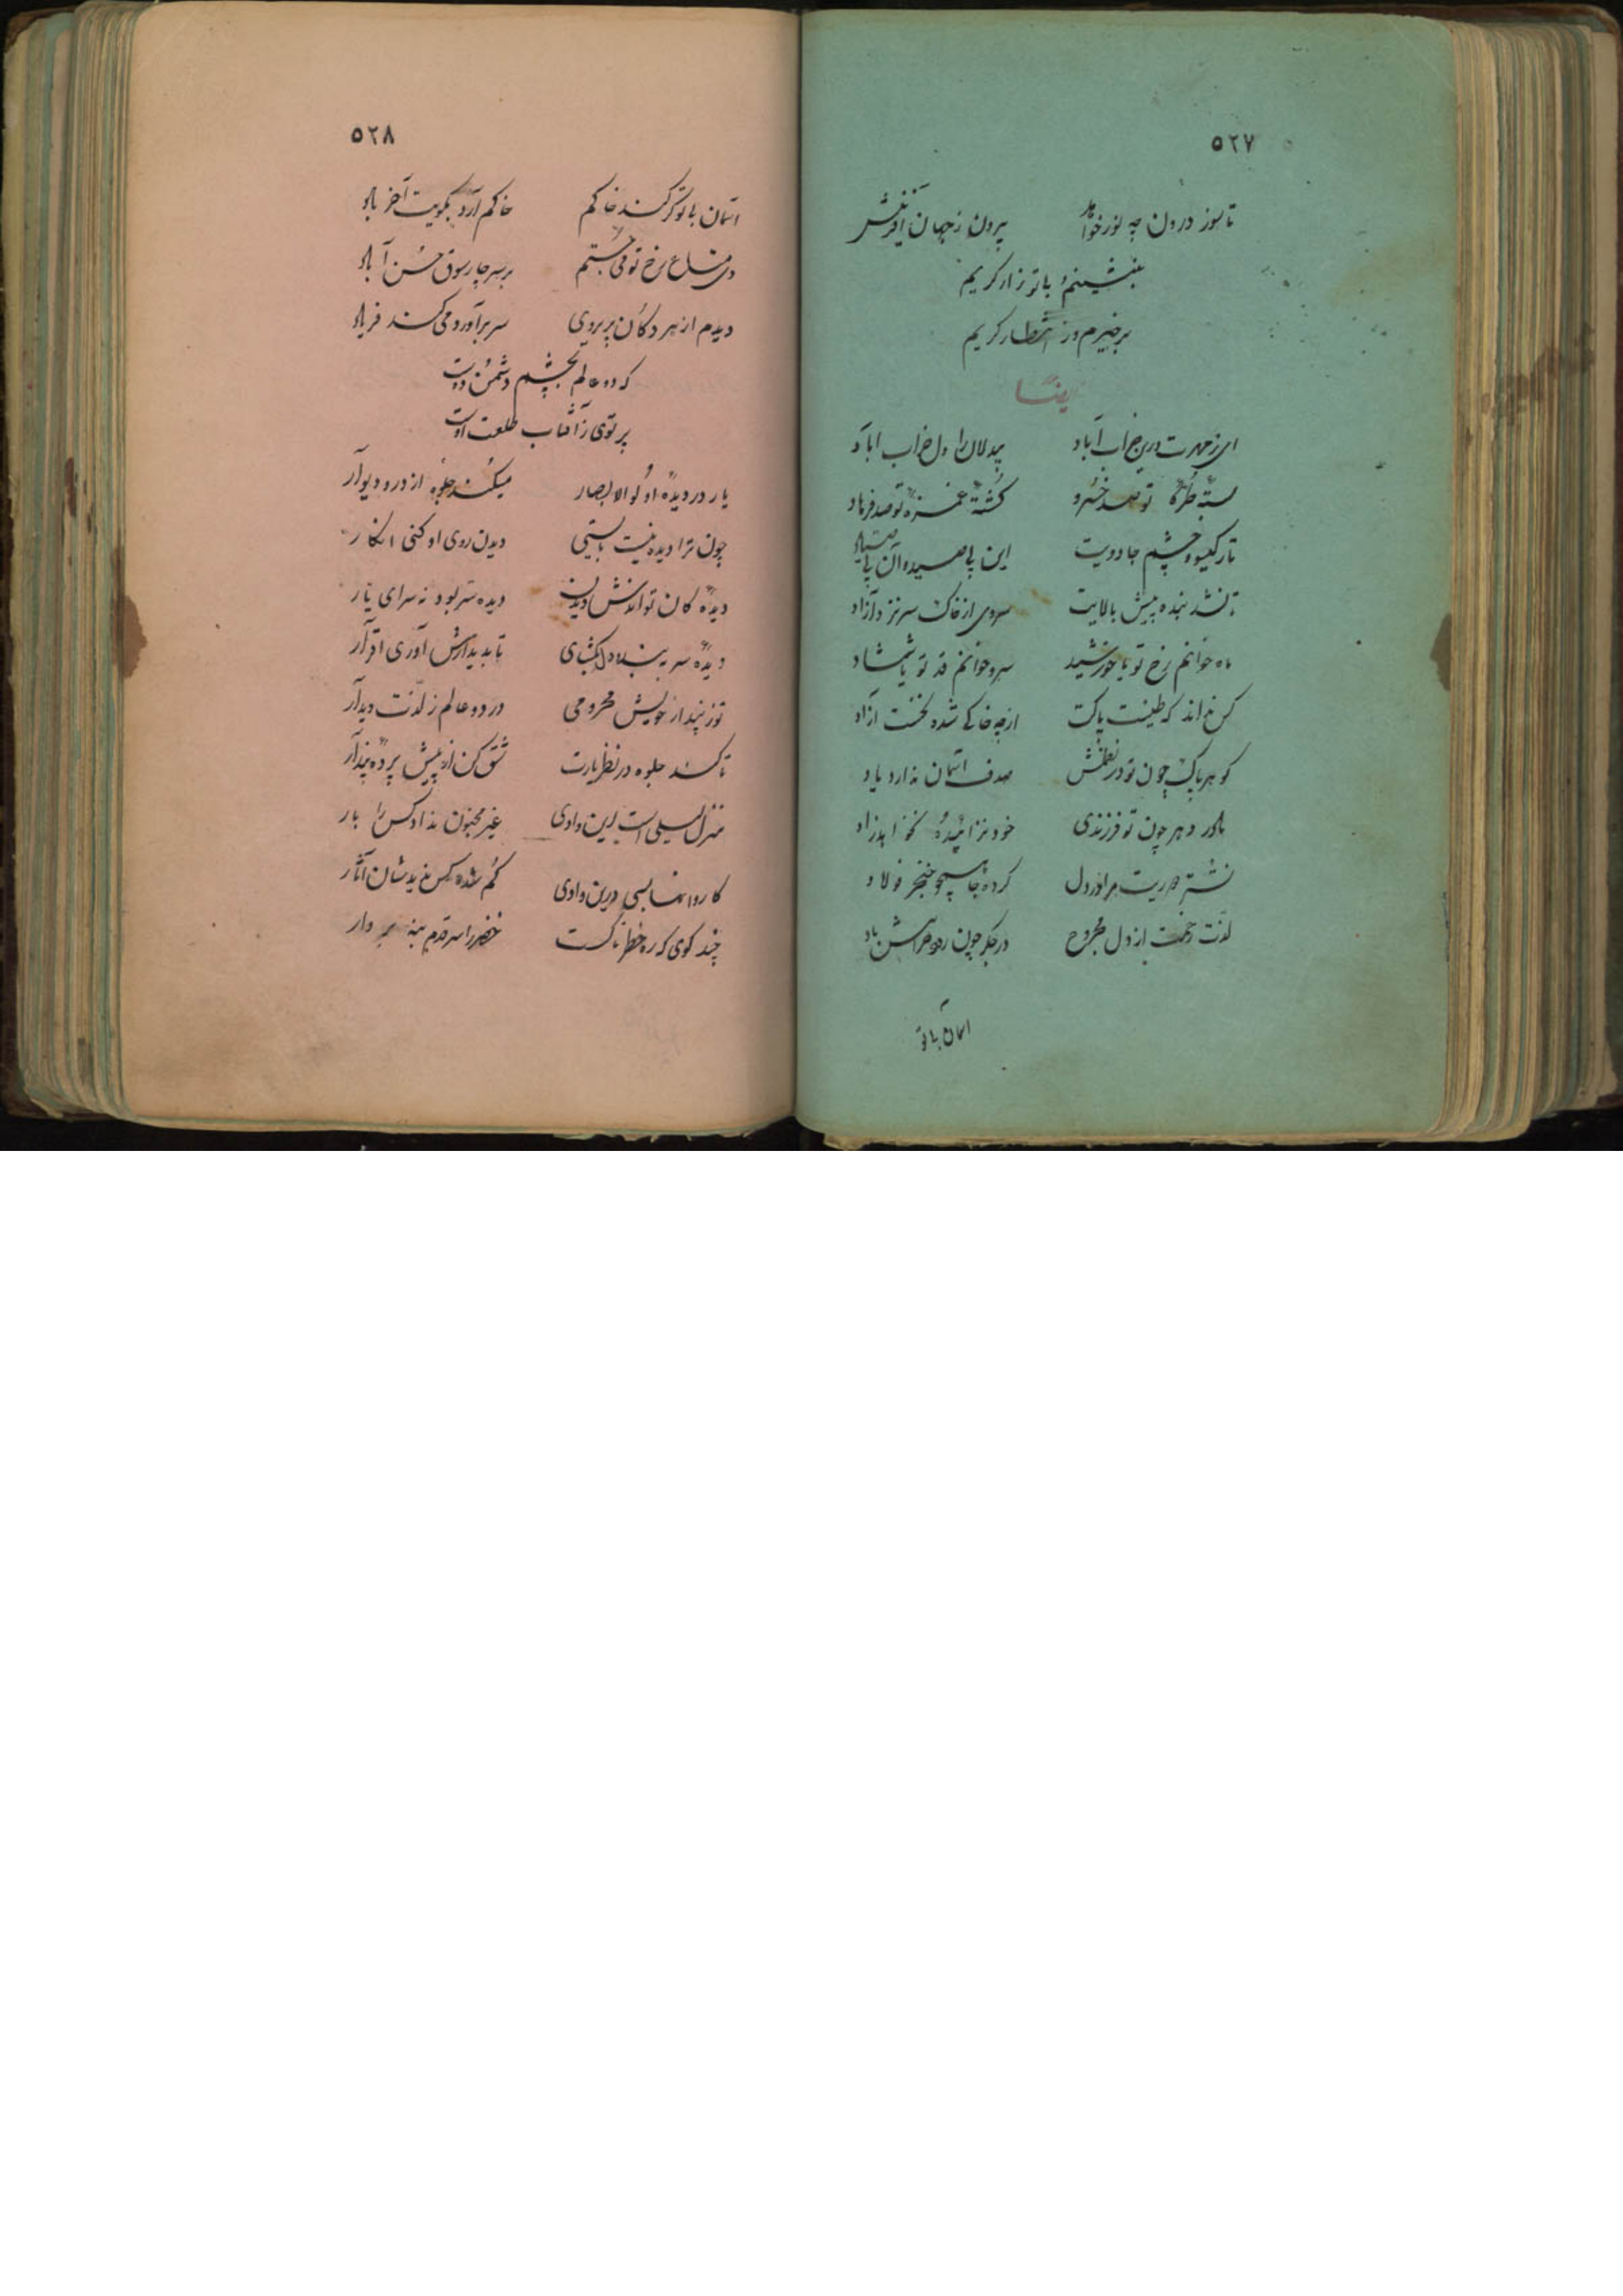 ٥٢٧
تا سوز درون چه نور خواهد بیرون ز جهان آفرینش
بنشینم با تو زار گریم
برخیزم و ز انتظار گریم
ایضاً
ای ز مهرت درین خراب آباد بیدلان را دل خراب اباد
بستهٔ طرهٔ تو صد خسرو کشتهٔ غمزهٔ تو صد فرهاد
تار گیسو و چشم جادویت این پی صید و آن پی صیاد
تا نشد بنده پیش بالایت سروی از خاک سر نزد آزاد
ماه خوانم رخ تو یا خورشید سرو خوانم قد تو یا شمشاد
کس نداند که طینت پاکت از چه خاکی شده نخست ازاد
گوهر پاک چون تو در صدف اسمان ندارد یاد
مادر دهر چون تو فرزندی خود نزائیده نخواهد زاد
نشتر مرا در دل کرده جا همچو خنجر فولاد
لذت زخمت از دل مجروح در جگر چون رود خراشش باد
اسمان با تو
٥٢٨
اسمان با تو گر کند خاکم خاکم آرد بکویت آخر باد
دی متاع رخ تو می جستم بر سر چارسوق حسن آباد
دیدم از هر دکان پریرویی سر برآورد و می کند فریاد
که دو عالم بچشم دشمن و دوست
پرتوی ز آفتاب طلعت اوست
یار در دیدهٔ اولوالابصار میکند جلوه از در و دیوار
چون ترا دیده نیست بایستی دیدن روی او کنی انکار
دیدهٔ کان تواندش دیدن دیدهٔ سر بود نه سرای یار
دیدهٔ سر ببند و دل بگشای تا بدیدارش آوری اقرار
تو ز پندار خویش محرومی در دو عالم ز لذت دیدار
تا کند جلوه در نظر یارت شق کن از پیش پردهٔ پندار
منزل لیلی است این وادی غیر مجنون نداد کس را بار
کاروانها بسی درین وادی گم شده کس ندید شان آثار
چند گوی که ره خطرناکست خضر را سر قدم بنه بردار